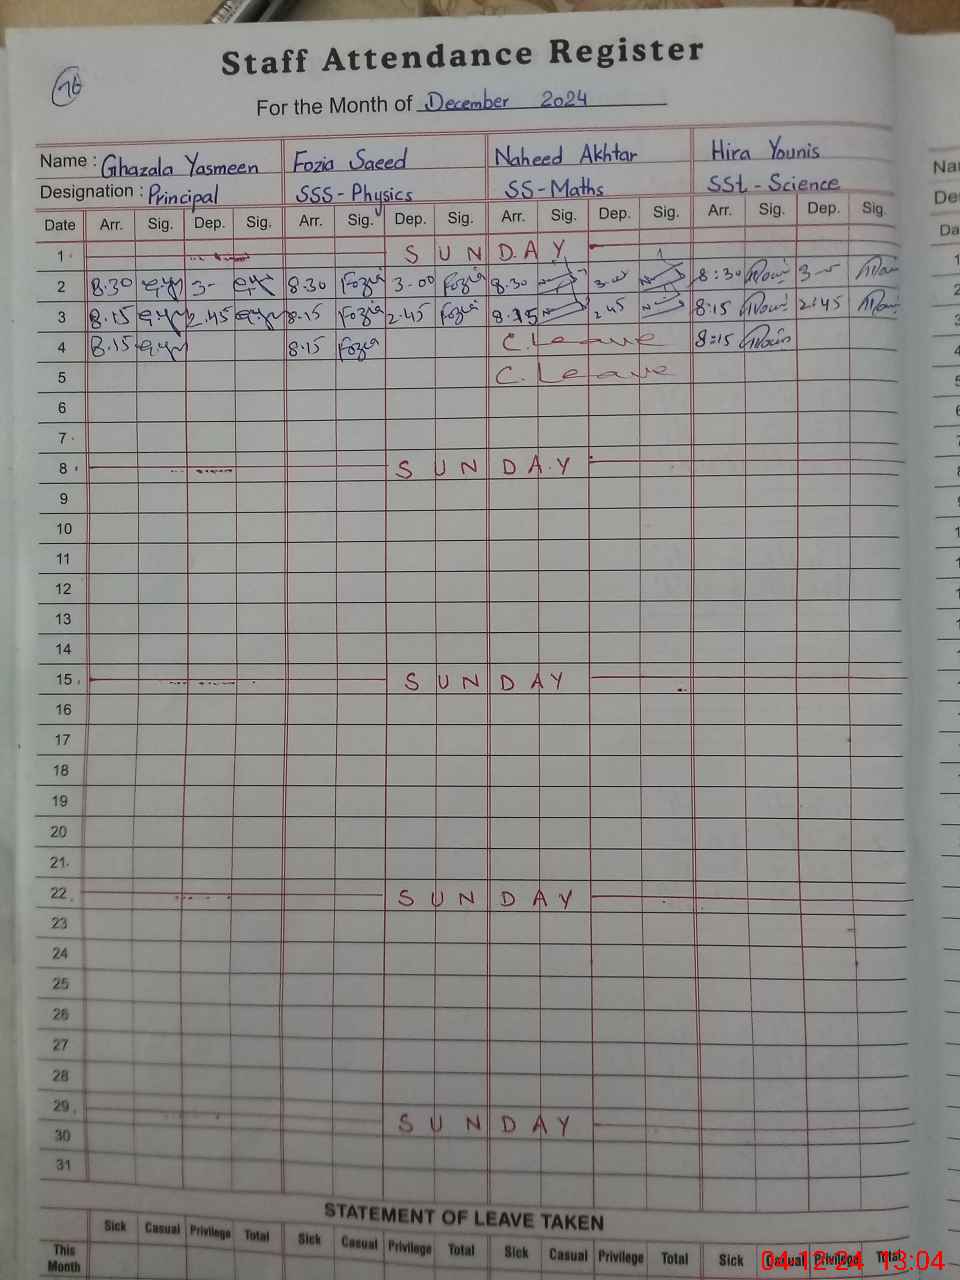 76
Staff Attendance Register
For the Month of December 2024
Name : Ghazala Yasmeen Fozia Saeed Naheed Akhtar Hira Younis
Designation : Principal SSS-Physics SS-Maths SSt-Science
Date Arr. Sig. Dep. Sig. Arr. Sig. Dep. Sig. Arr. Sig. Dep. Sig. Arr. Sig. Dep. Sig.
1 SUNDAY
2 8.30 3- 8.30 Fozia 3-00 Fozia 8.30 3-00 8:30 3-00
3 8.15 2.45 8.15 Fozia 2.45 Fozia 8.15 2 45 8:15 2:45
4 8.15 8.15 Fozia C. Leave 8:15
5 C. Leave
6
7
8 SUNDAY
9
10
11
12
13
14
15 SUNDAY
16
17
18
19
20
21
22 SUNDAY
23
24
25
26
27
28
29 SUNDAY
30
31
STATEMENT OF LEAVE TAKEN
Sick Casual Privilege Total Sick Casual Privilege Total Sick Casual Privilege Total Sick Casual Privilege Total
This Month
04-12-24 13:04